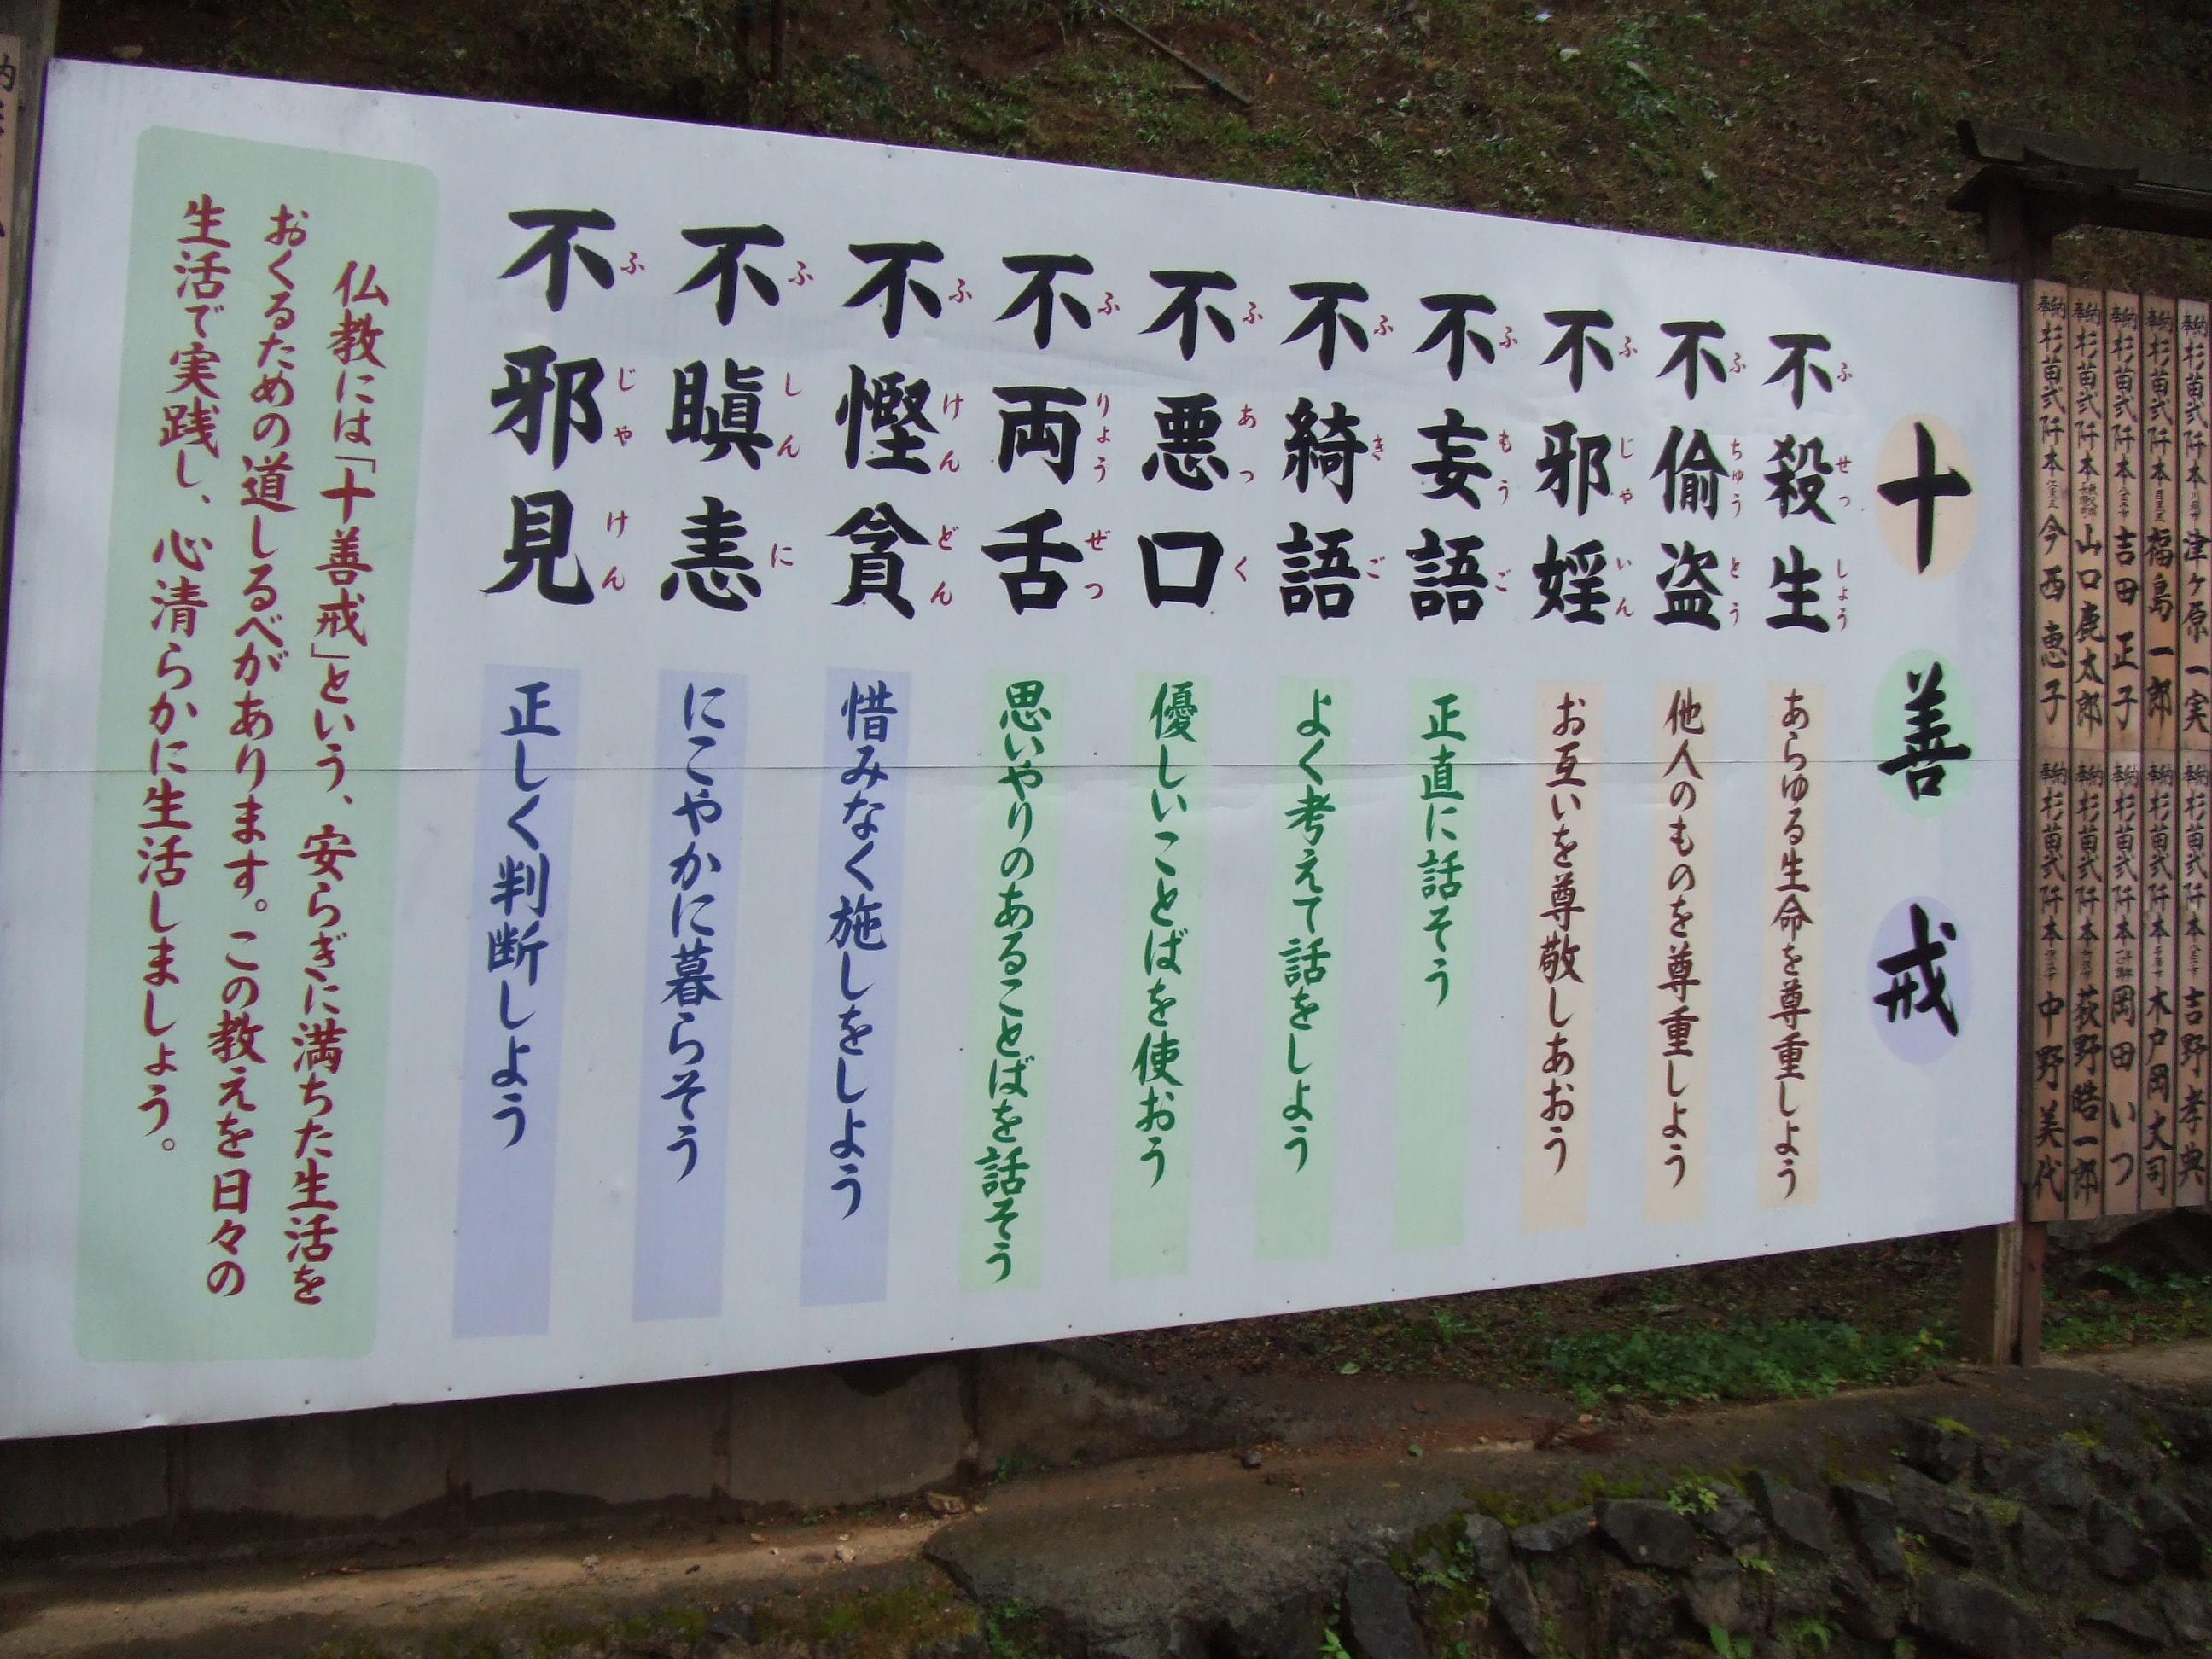 十善戒
不殺生
ふせっしょう
あらゆる生命を尊重しよう
不偸盗
ふちゅうとう
他人のものを尊重しよう
不邪婬
ふじゃいん
お互いを尊敬しあおう
不妄語
ふもうご
正直に話そう
不綺語
ふきご
よく考えて話をしよう
不悪口
ふあっく
優しいことばを使おう
不両舌
ふりょうぜつ
思いやりのあることばを話そう
不慳貪
ふけんどん
惜みなく施しをしよう
不瞋恚
ふしんに
にこやかに暮らそう
不邪見
ふじゃけん
正しく判断しよう
仏教には「十善戒」という、安らぎに満ちた生活を
おくるための道しるべがあります。この教えを日々の
生活で実践し、心清らかに生活しましょう。
奉納 杉苗弐阡本 津ヶ原一実
奉納 杉苗弐阡本 福島一郎
奉納 杉苗弐阡本 吉田正子
奉納 杉苗弐阡本 山口鹿太郎
奉納 杉苗弐阡本 今西恵子
奉納 杉苗弐阡本 吉野孝典
奉納 杉苗弐阡本 木戸岡大司
奉納 杉苗弐阡本 岡田いつ
奉納 杉苗弐阡本 荻野皓一郎
奉納 杉苗弐阡本 中野美代